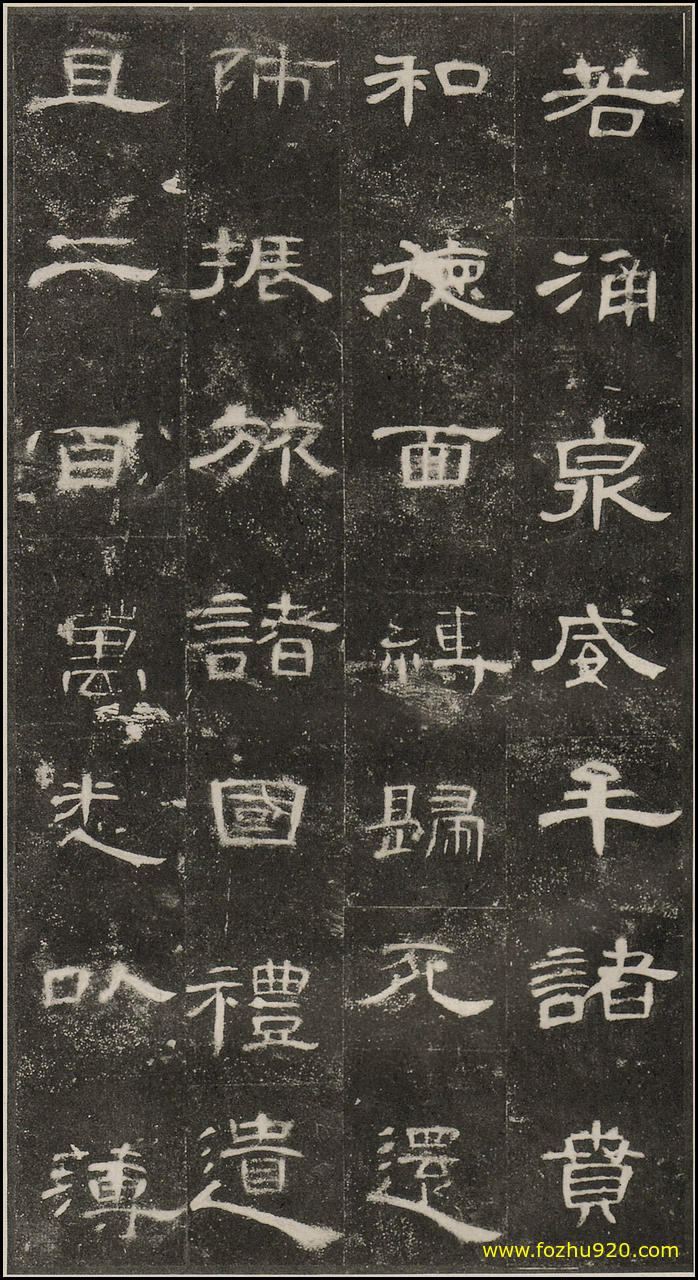 若涌泉威牟諸賁
和德面縛歸死還
師振旅諸國禮遺
且二百萬悉以薄
www.fozhu920.com